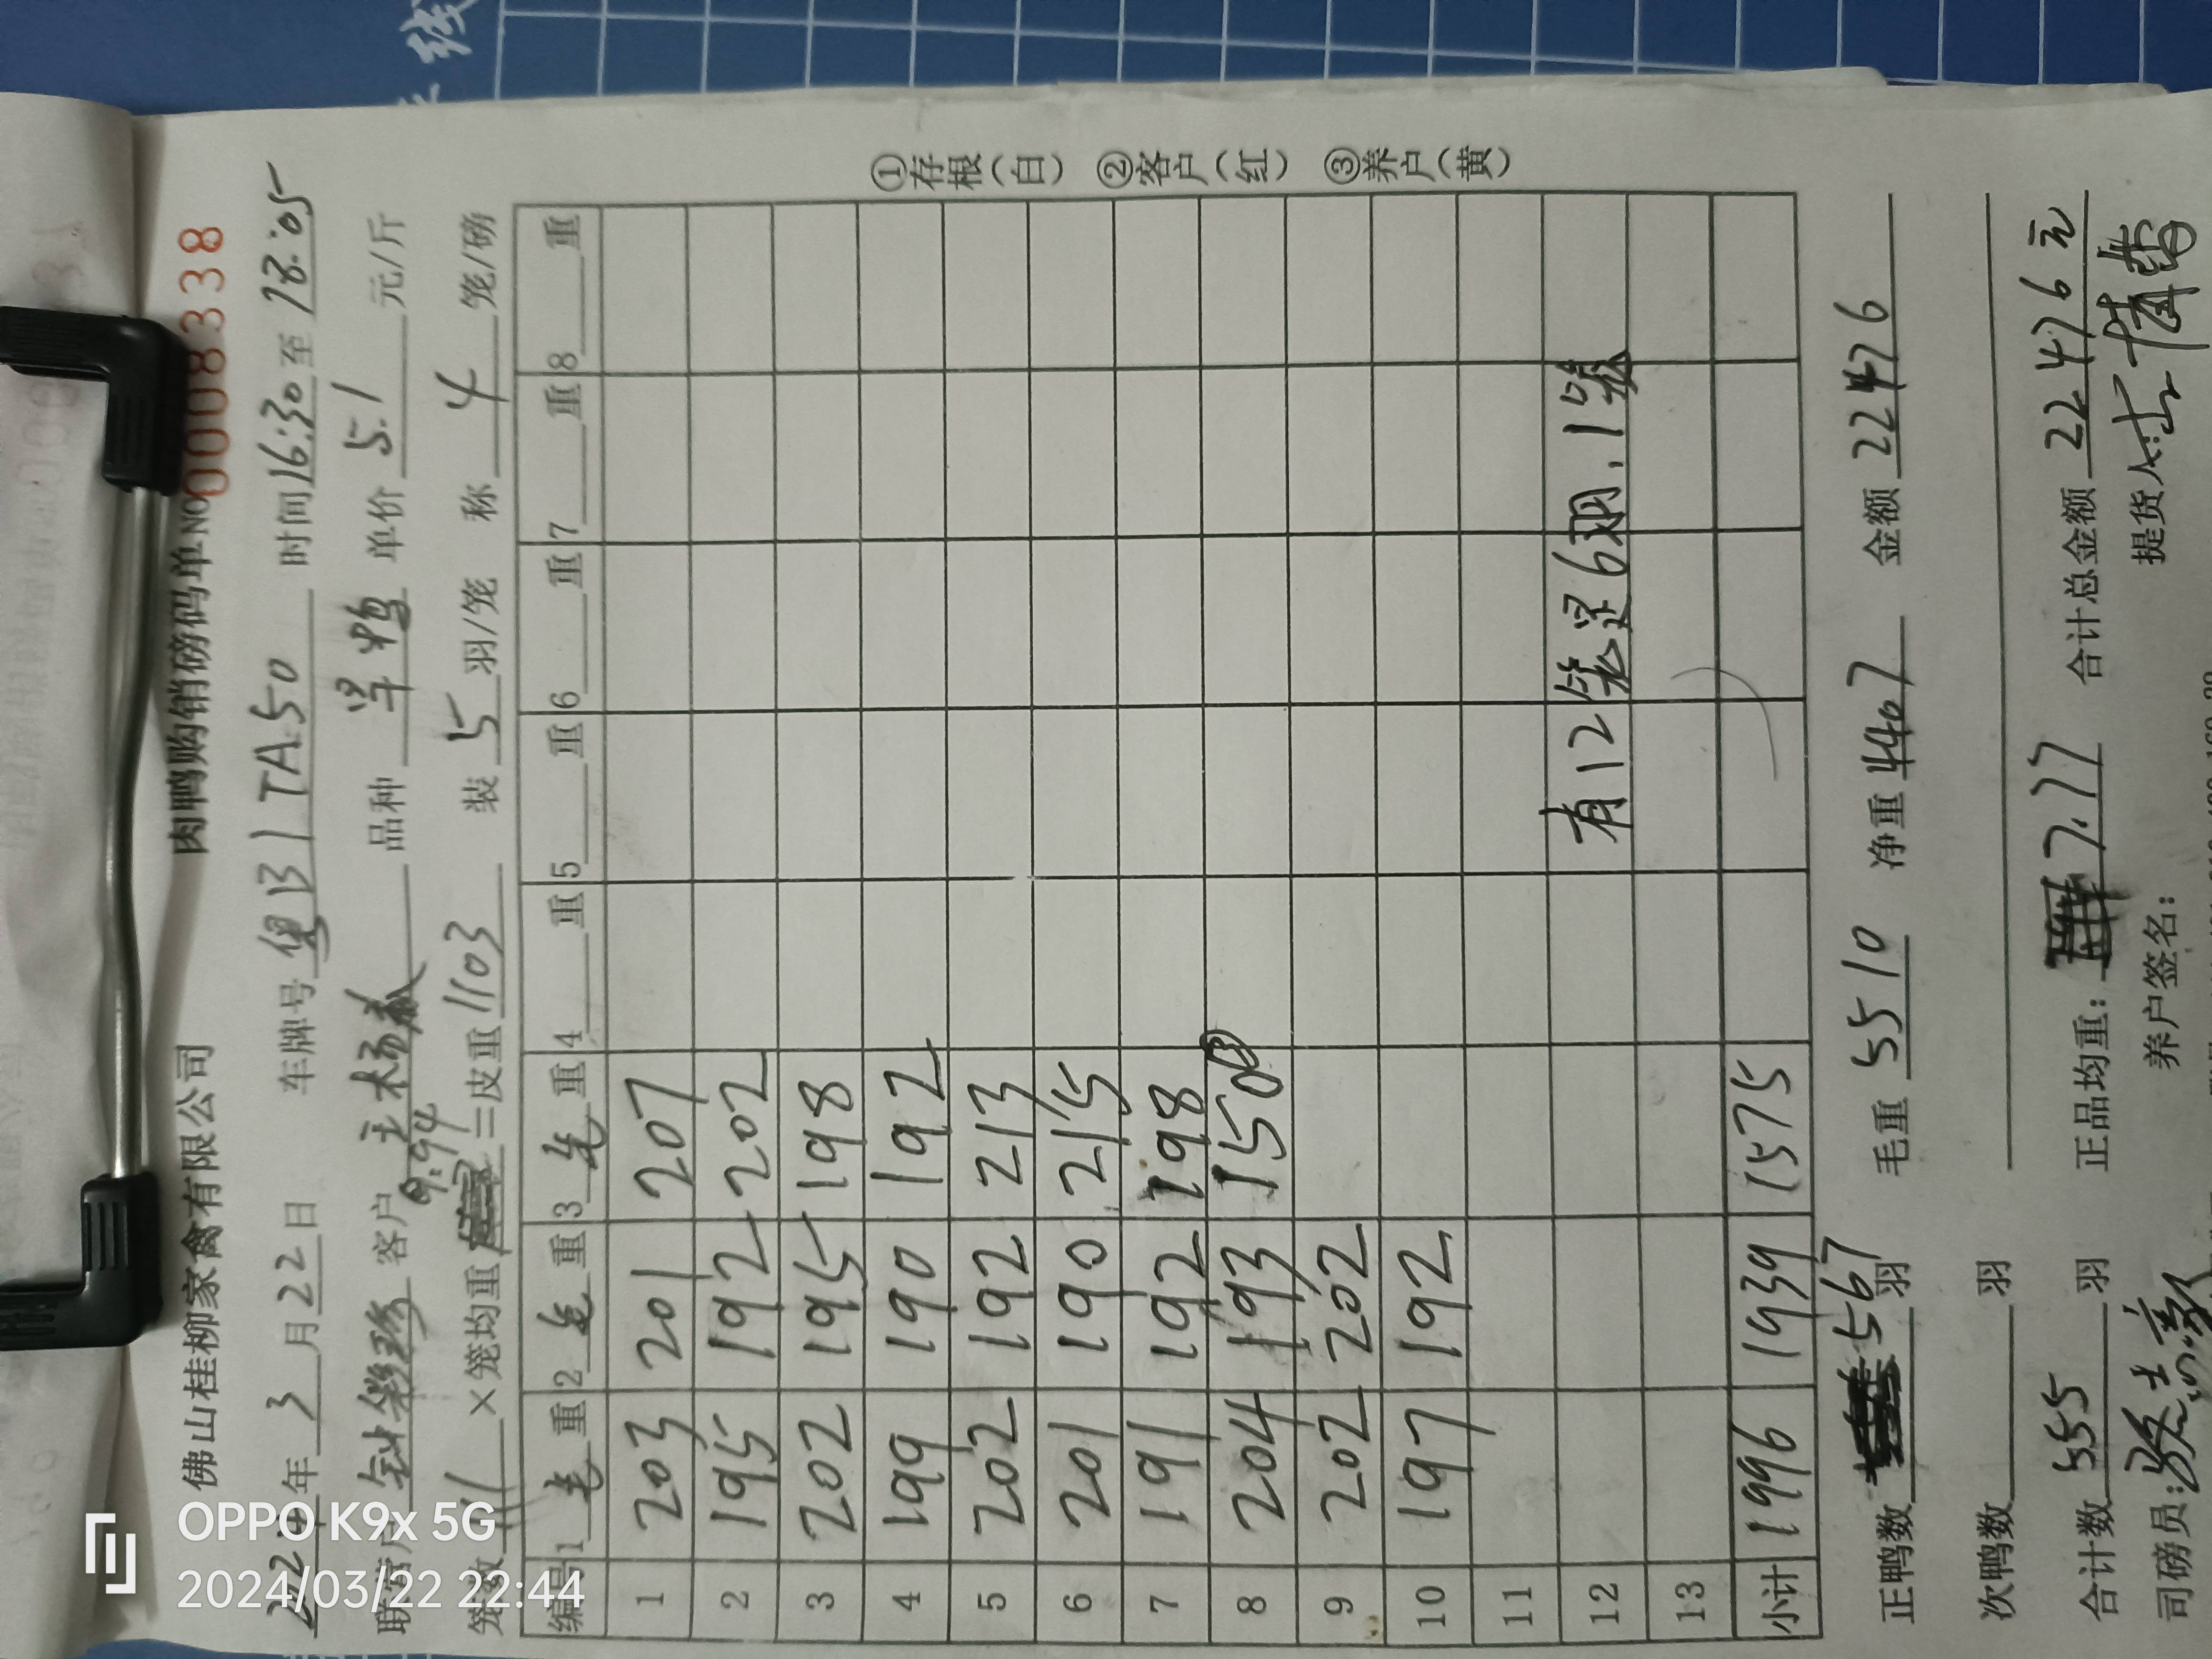 佛山桂柳家禽有限公司 肉鸭购销磅码单 NO 0008338
年 3 月 22 日 车牌号 粤B1TA50 时间 16:30 至 18:05
客户 品种 单价 5.1 元/斤
9.94
× 笼均重 =皮重 1103 装 5 羽/笼 称 4 笼/磅
编号 1 毛 重 2 毛 重 3 毛 重 4 重 5 重 6 重 7 重 8 重
1 203 201 207
2 195 192 202
3 202 195 198
4 199 190 192
5 202 192 213
6 201 190 215
7 191 192 198
8 204 193 150
9 202 202
10 197 192
11
12 有12笼是6羽.1笼
13
小计 1996 1939 1575
正鸭数 567 羽 毛重 5510 净重 4407 金额 22476
次鸭数 羽
合计数 555 羽 正品均重: 7.77 合计总金额 22476元
司磅员: 养户签名: 提货人:
①存根(白) ②客户(红) ③养户(黄)
OPPO K9x 5G
2024/03/22 22:44